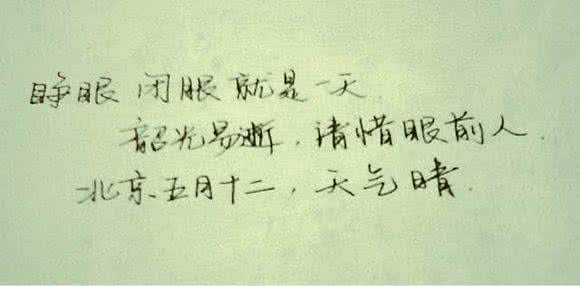 睁眼 闭眼 就是一天
韶光易逝，请惜眼前人.
北京五月十二，天气晴.